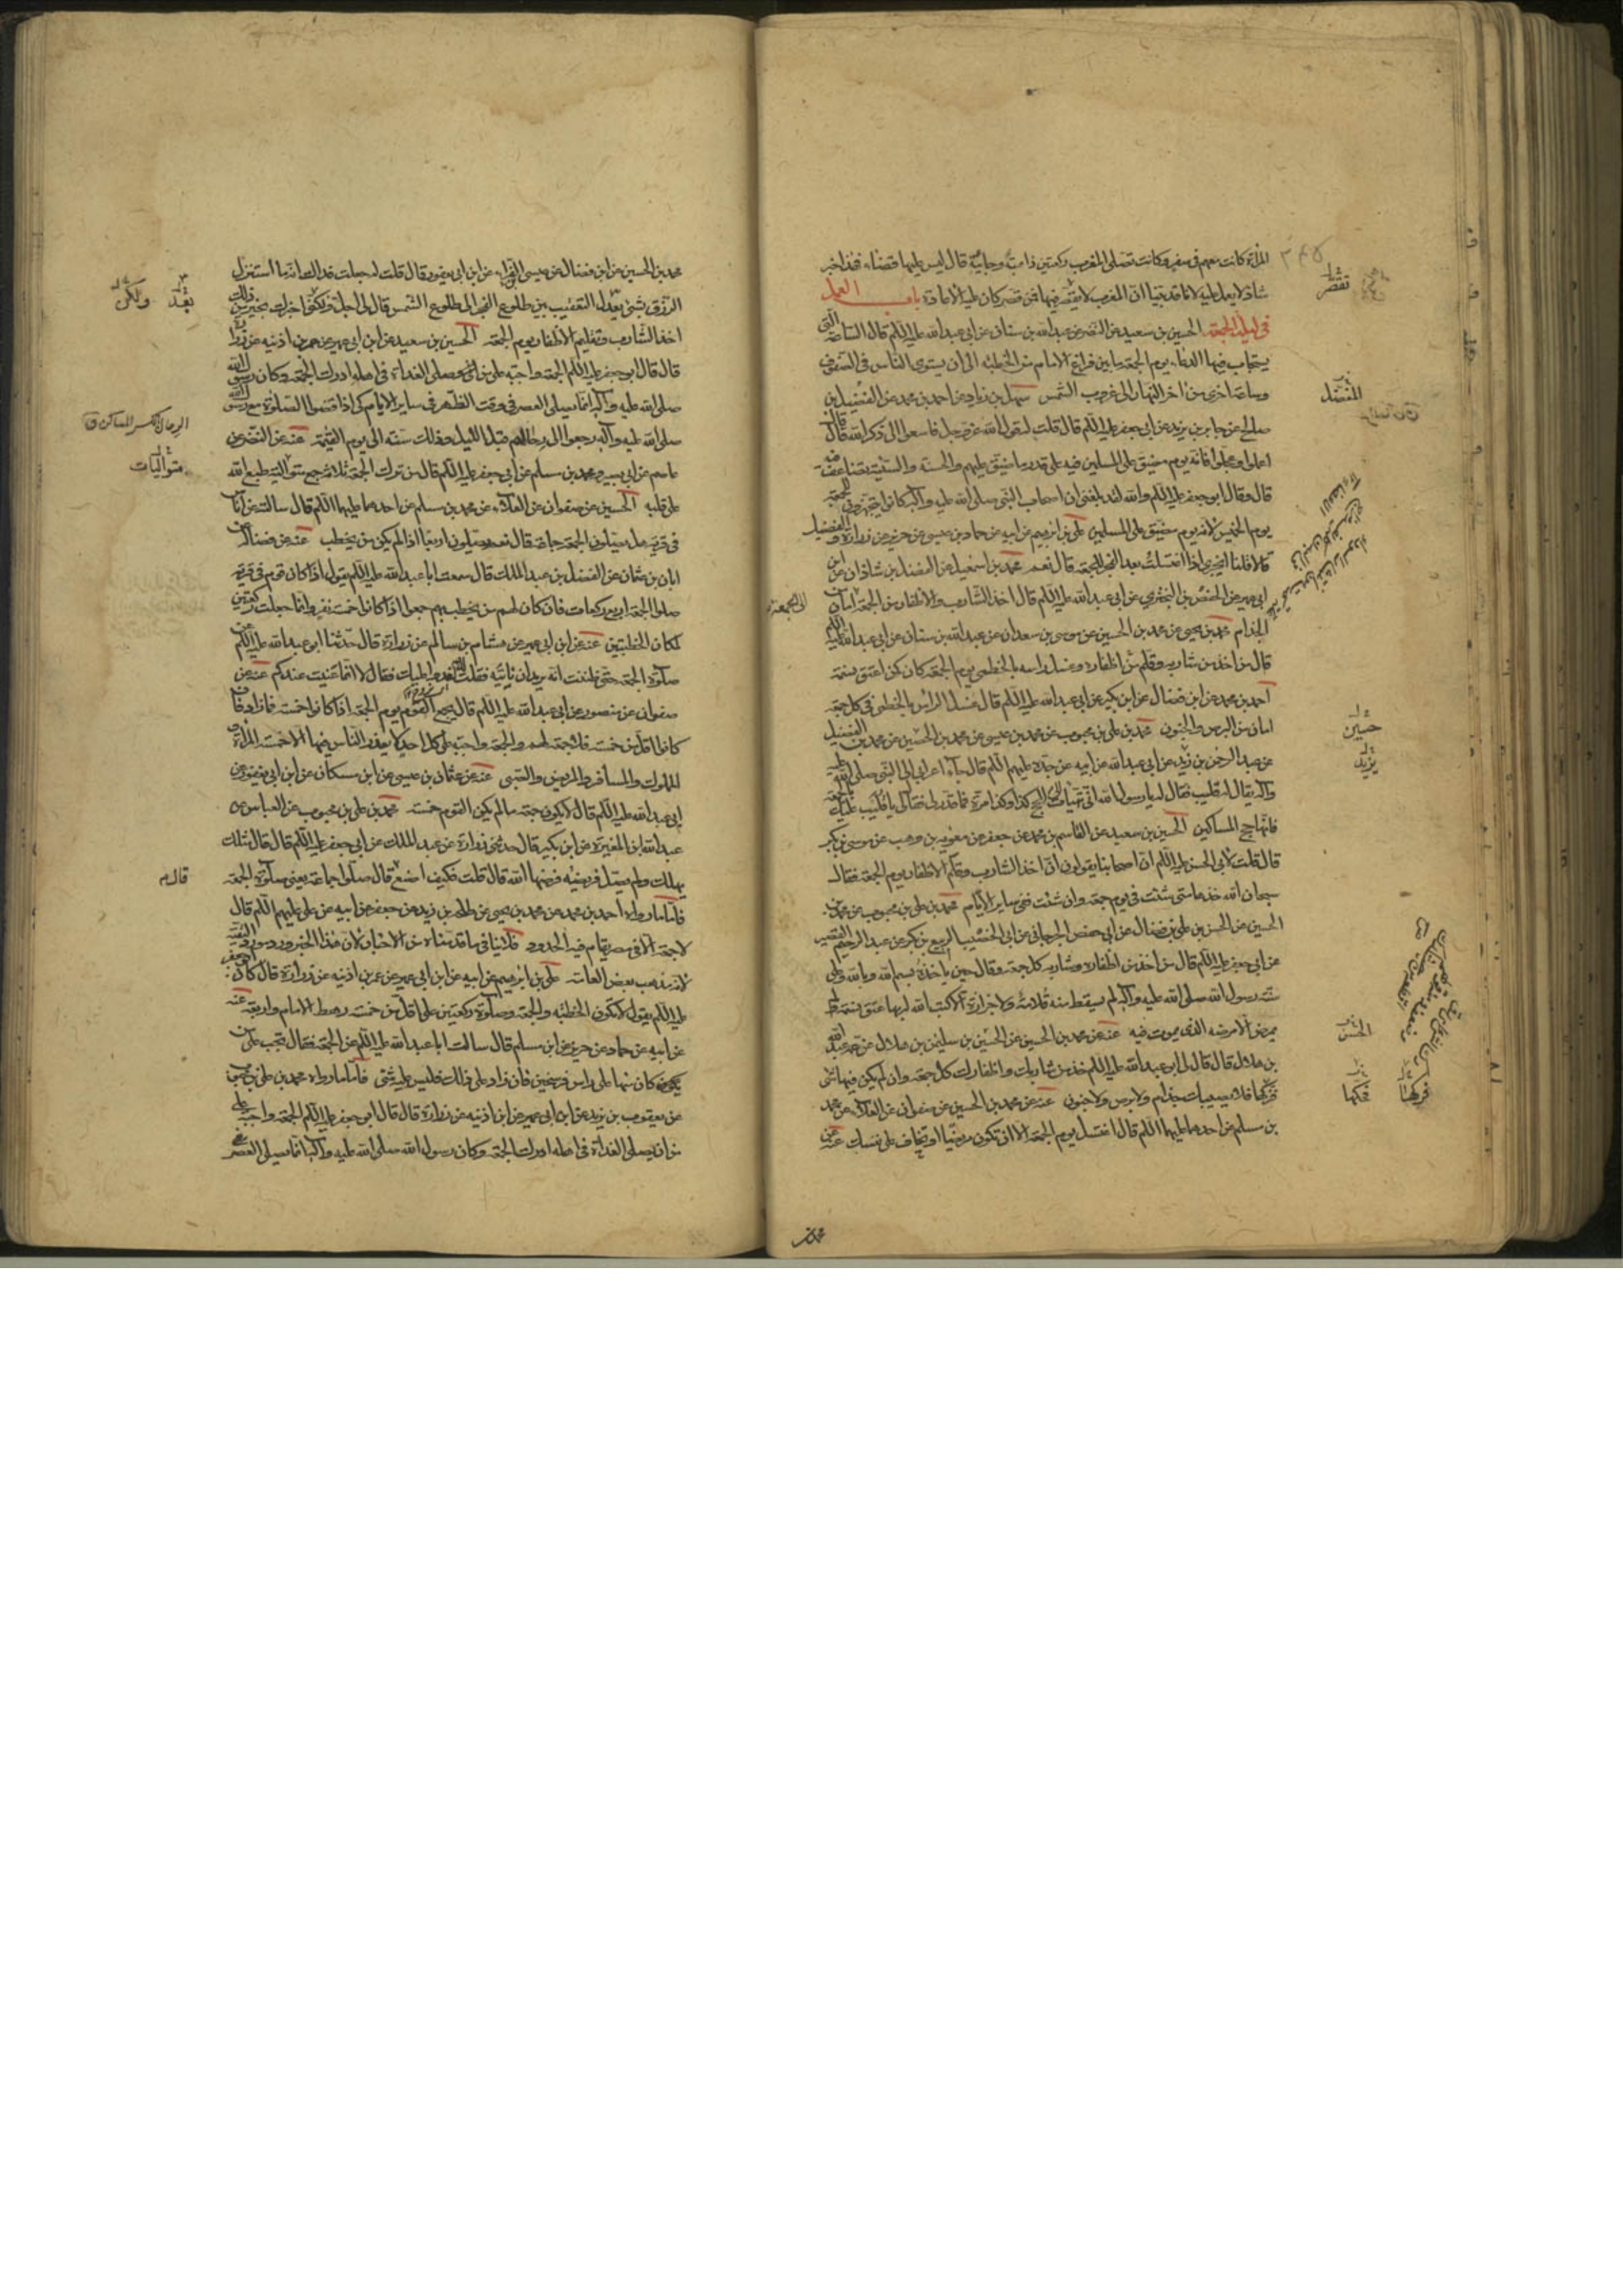 المرأة كانت معهم فى سفر وكانت تصلى المغرب ركعتين ذاهبة وجائية قال ليس عليها قضاء فهذا خبر
شاذ لا يعمل عليه لانا قد بينا ان المغرب لا يقصر فيها فمن قصر كان عليه الاعادة باب العمل
فى ليلة الجمعة الحسين بن سعيد عن النضر عن عبد الله بن سنان عن ابى عبد الله عليه السلم قال الساعة التى
يستجاب فيها الدعاء يوم الجمعة ما بين فراغ الامام من الخطبة الى ان يستوى الناس فى الصفوف
وساعة اخرى من اخر النهار الى غروب الشمس سهل بن زياد عن احمد بن محمد عن المفضل بن
صالح عن جابر بن يزيد عن ابى جعفر عليه السلم قال قلت له قول الله عز وجل فاسعوا الى ذكر الله قال قال
اعملوا وعجلوا فانه يوم مضيق على المسلمين فيه على قدر ما ضيق عليهم والحسنة والسيئة تضاعف فيه
قال وقال ابو جعفر عليه السلم والله لقد بلغنى ان اصحاب النبى صلى الله عليه وآله كانوا يتجهزون للجمعة
يوم الخميس لانه يوم مضيق على المسلمين على بن ابرهيم عن ابيه عن حماد بن عيسى عن حريز عن زرارة والفضيل
قالا قلنا له يجزى اذا اغتسلت بعد الفجر للجمعة قال نعم محمد بن اسمعيل عن الفضل بن شاذان عن ابن
ابى عمير عن حفص بن البخترى عن ابى عبد الله عليه السلم قال اخذ الشارب والاظفار من الجمعة امان من
الجذام محمد بن يحيى عن محمد بن الحسين عن موسى بن سعدان عن عبد الله بن سنان عن ابى عبد الله عليه السلم
قال من اخذ من شاربه وقلم من اظفاره وغسل راسه بالخطمى يوم الجمعة كان كمن اعتق نسمة
احمد بن محمد عن ابن فضال عن ابن بكير عن ابى عبد الله عليه السلم قال غسل الراس بالخطمى فى كل جمعة
امان من البرص والجنون محمد بن على بن محبوب عن محمد بن عيسى عن محمد بن الحسين عن محمد بن الفضيل
عن عبد الرحمن بن زيد عن ابى عبد الله عن ابيه عن جده عليهم السلم قال جاء اعرابى الى النبى صلى الله عليه
وآله يقال له قليب فقال له يا رسول الله انى تهيات الى الحج كذا وكذا مرة فما قدر لى فقال له يا قليب عليك بالجمعة
فانها حج المساكين الحسين بن سعيد عن القاسم بن محمد عن جعفر عن معوية بن وهب عن موسى بن بكر
قال قلت لابى الحسن عليه السلم ان اصحابنا يقولون ان اخذ الشارب وقلم الاظفار يوم الجمعة فقال
سبحان الله خذها متى شئت فى يوم جمعة وان شئت فى سائر الايام محمد بن على بن محبوب عن محمد بن
الحسين عن الحسن بن على بن فضال عن ابى حفص الجرجانى عن ابى الخضيب الربيع بن بكر عن عبد الرحيم القصير
عن ابى جعفر عليه السلم قال من اخذ من اظفاره وشاربه كل جمعة وقال حين ياخذه بسم الله وبالله وعلى
سنة رسول الله صلى الله عليه وآله لم يسقط منه قلامة ولا جزازة الا كتب الله له بها عتق نسمة ولم
يمرض الا مرضه الذى يموت فيه عنه عن محمد بن الحسين عن الحسين بن سليمن بن هلال عن عمه عبد الله
بن هلال قال قال لى ابو عبد الله عليه السلم خذ من شاربك واظفارك كل جمعة وان لم يكن فيها شئ
فزكها فلا يصيبك جذام ولا برص ولا جنون عنه عن محمد بن الحسين عن صفوان عن العلاء عن محمد
بن مسلم عن احدهما عليهما السلم قال اغتسل يوم الجمعة الا ان تكون مريضا او تخاف على نفسك عنه عن
تقصر
المفضل
الى الجمعة
حسين
يزيد
الحسن
فحكها
محمد بن
محمد بن الحسين عن ابن فضال عن عيسى الفراء عن ابن ابى يعفور قال قلت له جعلت فداك يقال ما استنزل
الرزق بشئ يعدل التعقيب بين طلوع الفجر الى طلوع الشمس قال لى اجل ولكن اخبرك بخير من ذلك
اخذ الشارب وتقليم الاظفار يوم الجمعة الحسين بن سعيد عن ابن ابى عمير عن عمر بن اذينه عن زرارة
قال قال ابو جعفر عليه السلم الجمعة واجبة على من ان صلى الغداة فى اهله ادرك الجمعة وكان رسول الله
صلى الله عليه وآله انما يصلى العصر فى وقت الظهر فى ساير الايام كى اذا قضوا الصلوة مع رسول الله
صلى الله عليه وآله رجعوا الى رحالهم قبل الليل وذلك سنة الى يوم القيمة عنه عن النضر عن
عاصم عن ابى بصير ومحمد بن مسلم عن ابى جعفر عليه السلم قال من ترك الجمعة ثلاث جمع متوالية طبع الله
على قلبه الحسين عن صفوان عن العلاء عن محمد بن مسلم عن احدهما عليهما السلم قال سالته عن اناس
فى قرية هل يصلون الجمعة جماعة قال نعم يصلون اربعا اذا لم يكن من يخطب عنه عن فضالة عن
ابان بن عثمان عن الفضل بن عبد الملك قال سمعت ابا عبد الله عليه السلم يقول اذا كان قوم فى قرية
صلوا الجمعة اربع ركعات فان كان لهم من يخطب بهم جمعوا اذا كانوا خمسة نفر وانما جعلت ركعتين
لمكان الخطبتين عنه عن ابن ابى عمير عن هشام بن سالم عن زرارة قال حدثنا ابو عبد الله عليه السلم على
صلوة الجمعة حتى ظننت انه يريد ان ناتيه فقلت نغدو عليك فقال لا انما عنيت عندكم عنه عن
صفوان عن منصور عن ابى عبد الله عليه السلم قال يجمع القوم يوم الجمعة اذا كانوا خمسة فما زادوا فان
كانوا اقل من خمسة فلا جمعة لهم والجمعة واجبة على كل احد لا يعذر الناس فيها الا خمسة المراة و
المملوك والمسافر والمريض والصبى عنه عن عثمان بن عيسى عن ابن مسكان عن ابن ابى يعفور عن
ابى عبد الله عليه السلم قال لا يكون جمعة ما لم يكن القوم خمسة محمد بن على بن محبوب عن العباس عن
عبد الله بن المغيرة عن ابن بكير قال حدثنى زرارة عن عبد الملك عن ابى جعفر عليه السلم قال قال مثلك
يهلك ولم يصل فريضة فرضها الله قال قلت فكيف اصنع قال صلوا جماعة يعنى صلوة الجمعة
فاما ما رواه احمد بن محمد عن محمد بن يحيى عن طلحة بن زيد عن جعفر عن ابيه عن على عليهم السلم قال
لا جمعة الا فى مصر يقام فيه الحدود فلا ينافى ما قدمناه من الاخبار لان هذا الخبر ورد مورد التقية
لانه مذهب بعض العامة على بن ابرهيم عن ابيه عن ابن ابى عمير عن عمر بن اذينه عن زرارة قال كان ابو جعفر
عليه السلم يقول لا تكون الخطبة والجمعة وصلوة ركعتين على اقل من خمسة رهط الامام واربعة عنه
عن ابيه عن حماد عن حريز عن ابن مسلم قال سالت ابا عبد الله عليه السلم عن الجمعة فقال تجب على من
يكون كان منها على راس فرسخين فان زاد على ذلك فليس عليه شئ فاما ما رواه محمد بن على بن محبوب
عن يعقوب بن يزيد عن ابن ابى عمير عن ابن اذينه عن زرارة قال قال ابو جعفر عليه السلم الجمعة واجبة على
من ان يصلى الغداة فى اهله ادرك الجمعة وكان رسول الله صلى الله عليه وآله انما يصلى العصر فى
بعد
ولكن
متواليات
قال م